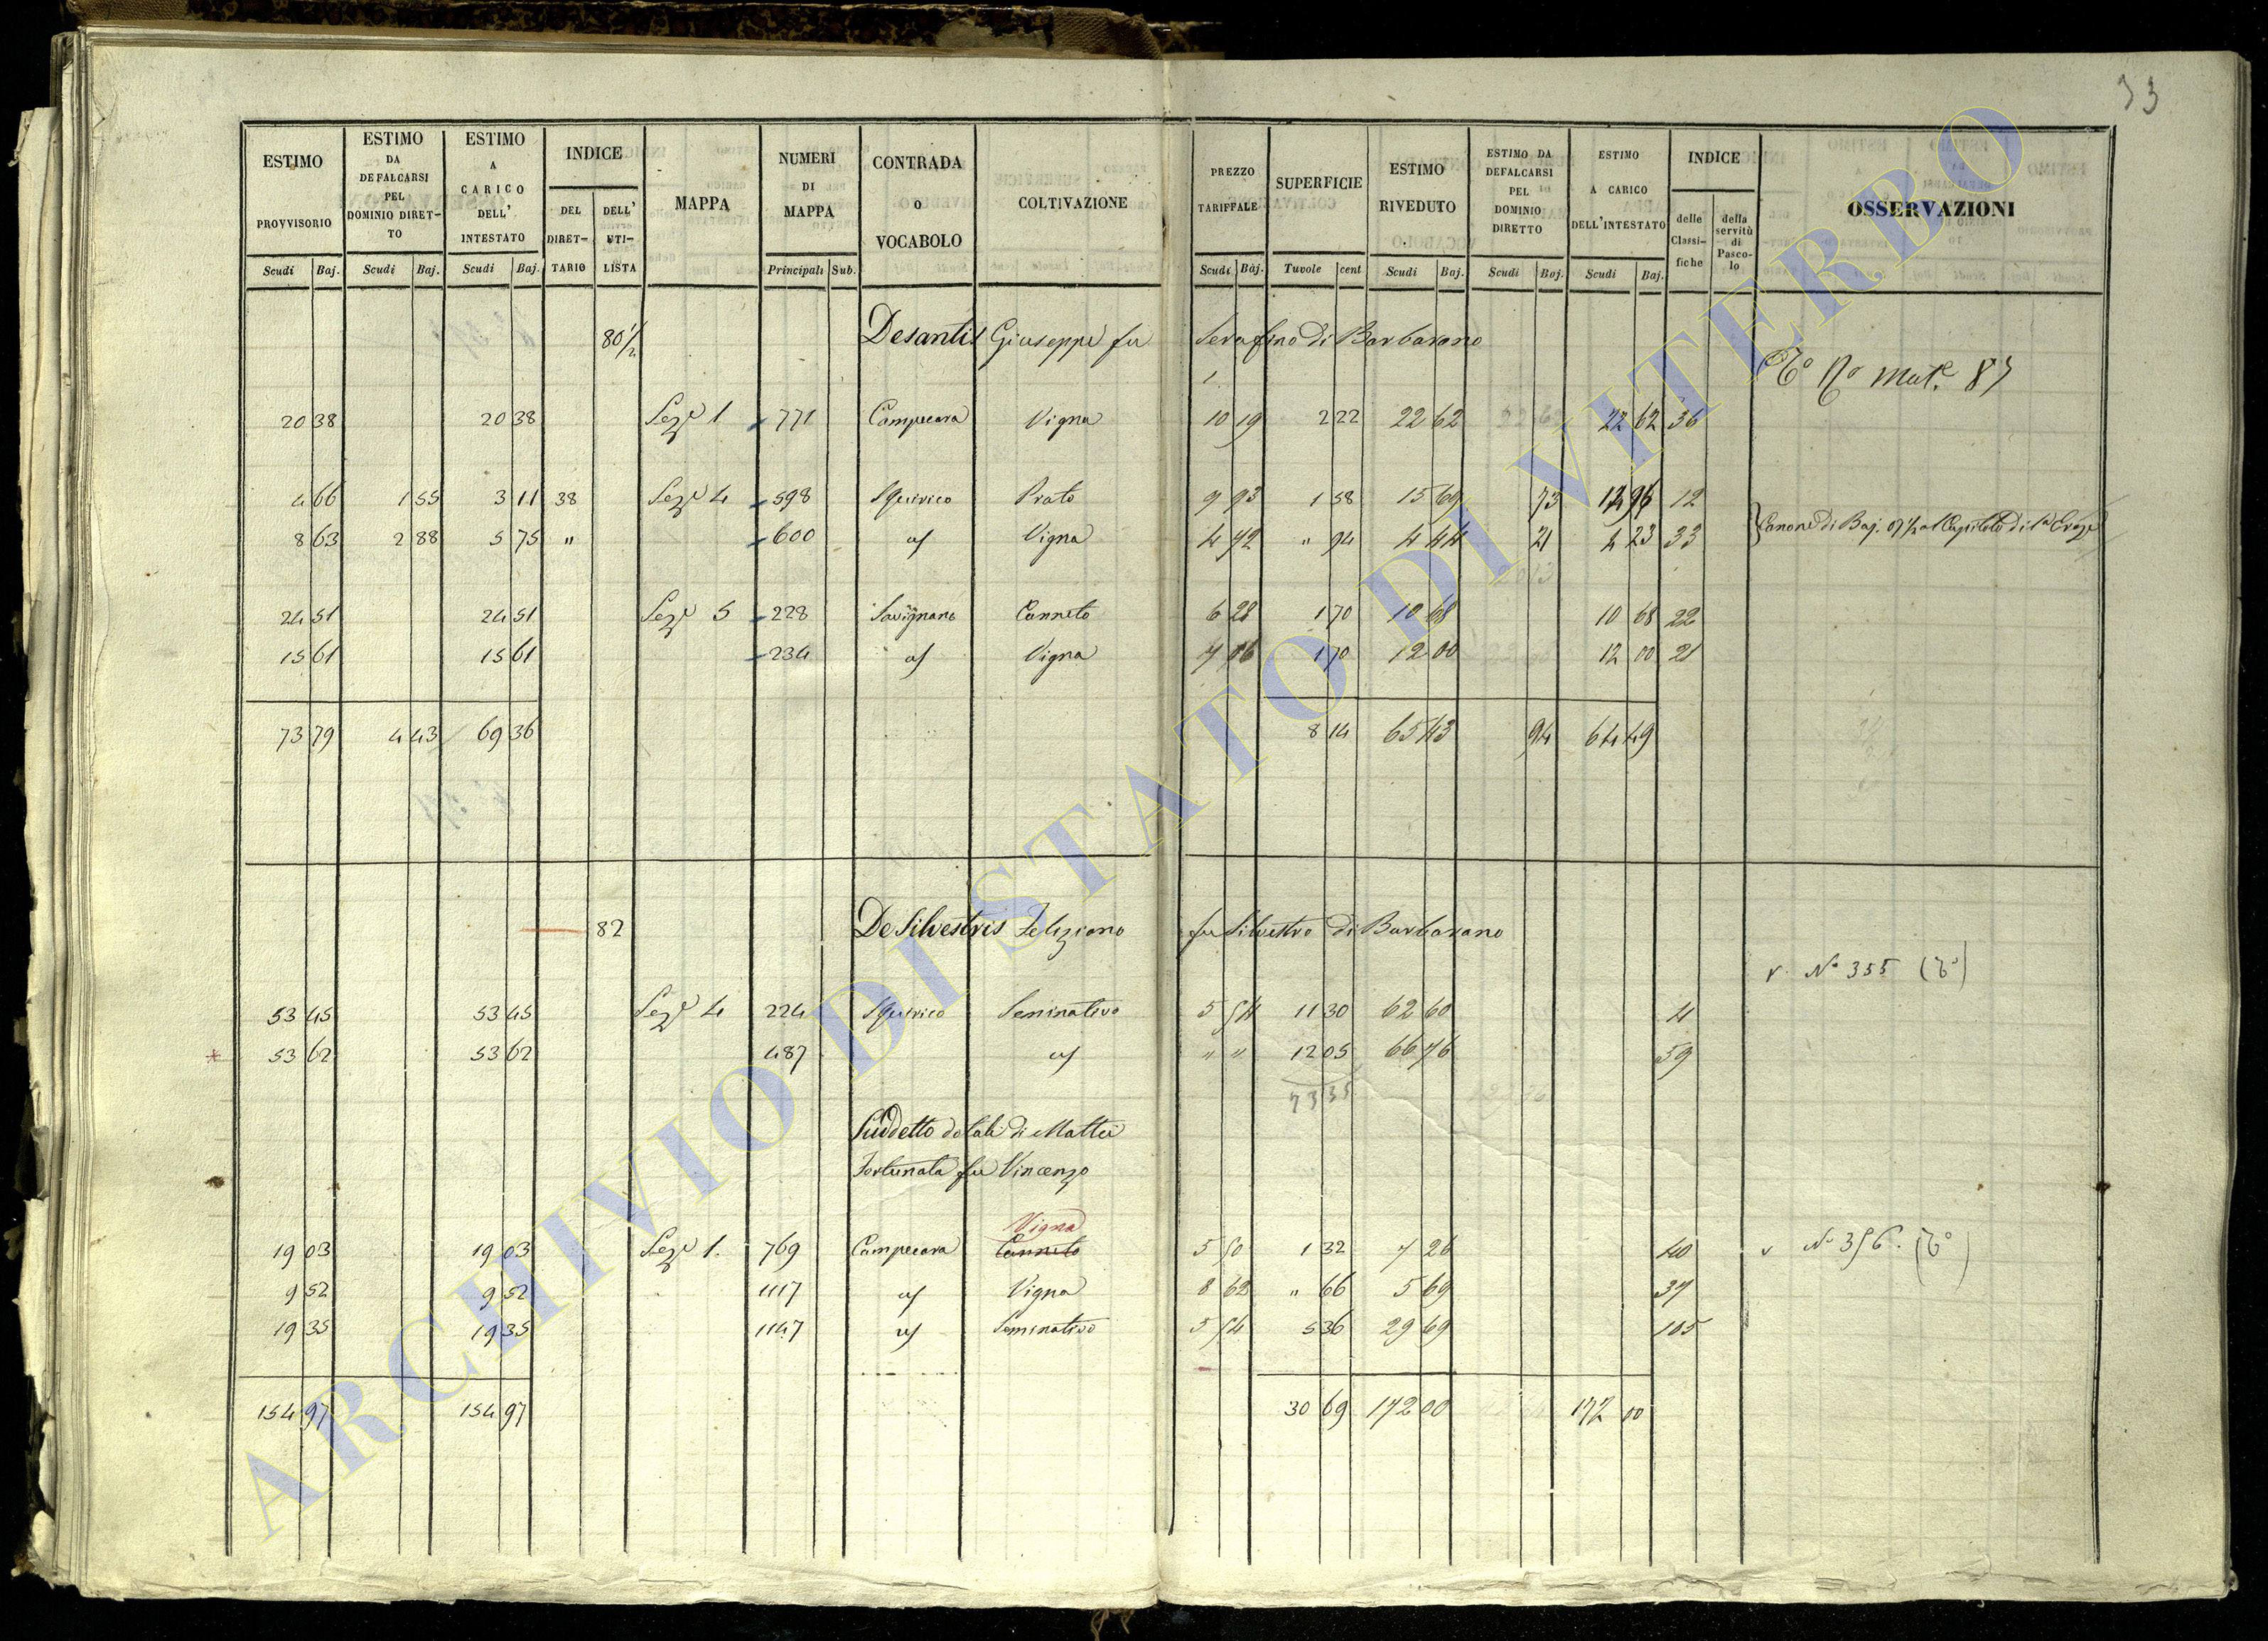 33
ESTIMO PROVVISORIO | ESTIMO DA DEFALCARSI PEL DOMINIO DIRETTO | ESTIMO A CARICO DELL' INTESTATO | INDICE | MAPPA | NUMERI DI MAPPA | CONTRADA O VOCABOLO | COLTIVAZIONE | PREZZO TARIFFALE | SUPERFICIE | ESTIMO RIVEDUTO | ESTIMO DA DEFALCARSI PEL DOMINIO DIRETTO | ESTIMO A CARICO DELL'INTESTATO | INDICE | OSSERVAZIONI
DEL DIRETTARIO | DELL' UTILISTA | delle Classifiche | della servitù di Pascolo
Scudi | Baj. | Scudi | Baj. | Scudi | Baj. | Principali | Sub. | Scudi | Baj. | Tavole | cent | Scudi | Baj. | Scudi | Baj. | Scudi | Baj.
80 1/2 Desantis Giuseppe fu Serafino di Barbarano
mat.e 87
20 38 | 20 38 | Sez.e 1 | 771 | Campecora | Vigna | 10 19 | 2 22 | 22 62 | 22 62 | 36
4 66 | 1 55 | 3 11 | 38 | Sez.e 4 | 598 | S Quirico | Prato | 9 93 | 1 58 | 15 69 | 73 | 14 96 | 12
8 63 | 2 88 | 5 75 | " | 600 | id | Vigna | 4 72 | " 94 | 4 44 | 21 | 4 23 | 33 | Canone di Baj. 07 1/2 al Capitolo di S.a Croce
24 51 | 24 51 | Sez.e 5 | 228 | Savignano | Canneto | 6 28 | 1 70 | 10 68 | 10 68 | 22
15 61 | 15 61 | 234 | id | Vigna | 7 06 | 1 70 | 12 00 | 12 00 | 21
73 79 | 4 43 | 69 36 | 8 14 | 65 43 | 94 | 64 49
82 De Silvestris Feliziano fu Silvestro di Barbarano
v. N.o 355 (T.o)
53 45 | 53 45 | Sez.e 4 | 224 | S Quirico | Seminativo | 5 54 | 11 30 | 62 60 | 4
53 62 | 53 62 | 487 | id | " " | 12 05 | 66 76 | 59
23 35
Suddetto dotali di Mattei
Fortunata fu Vincenzo
Vigna
19 03 | 19 03 | Sez.e 1. | 769 | Campecora | Canneto | 5 50 | 1 32 | 7 26 | 40 | v N.o 356. (T.o)
9 52 | 9 52 | 1117 | id | Vigna | 8 62 | " 66 | 5 69 | 37
19 35 | 19 35 | 1147 | id | Seminativo | 5 54 | 5 36 | 29 69 | 105
154 97 | 154 97 | 30 69 | 172 00 | 172 00
ARCHIVIO DI STATO DI VITERBO